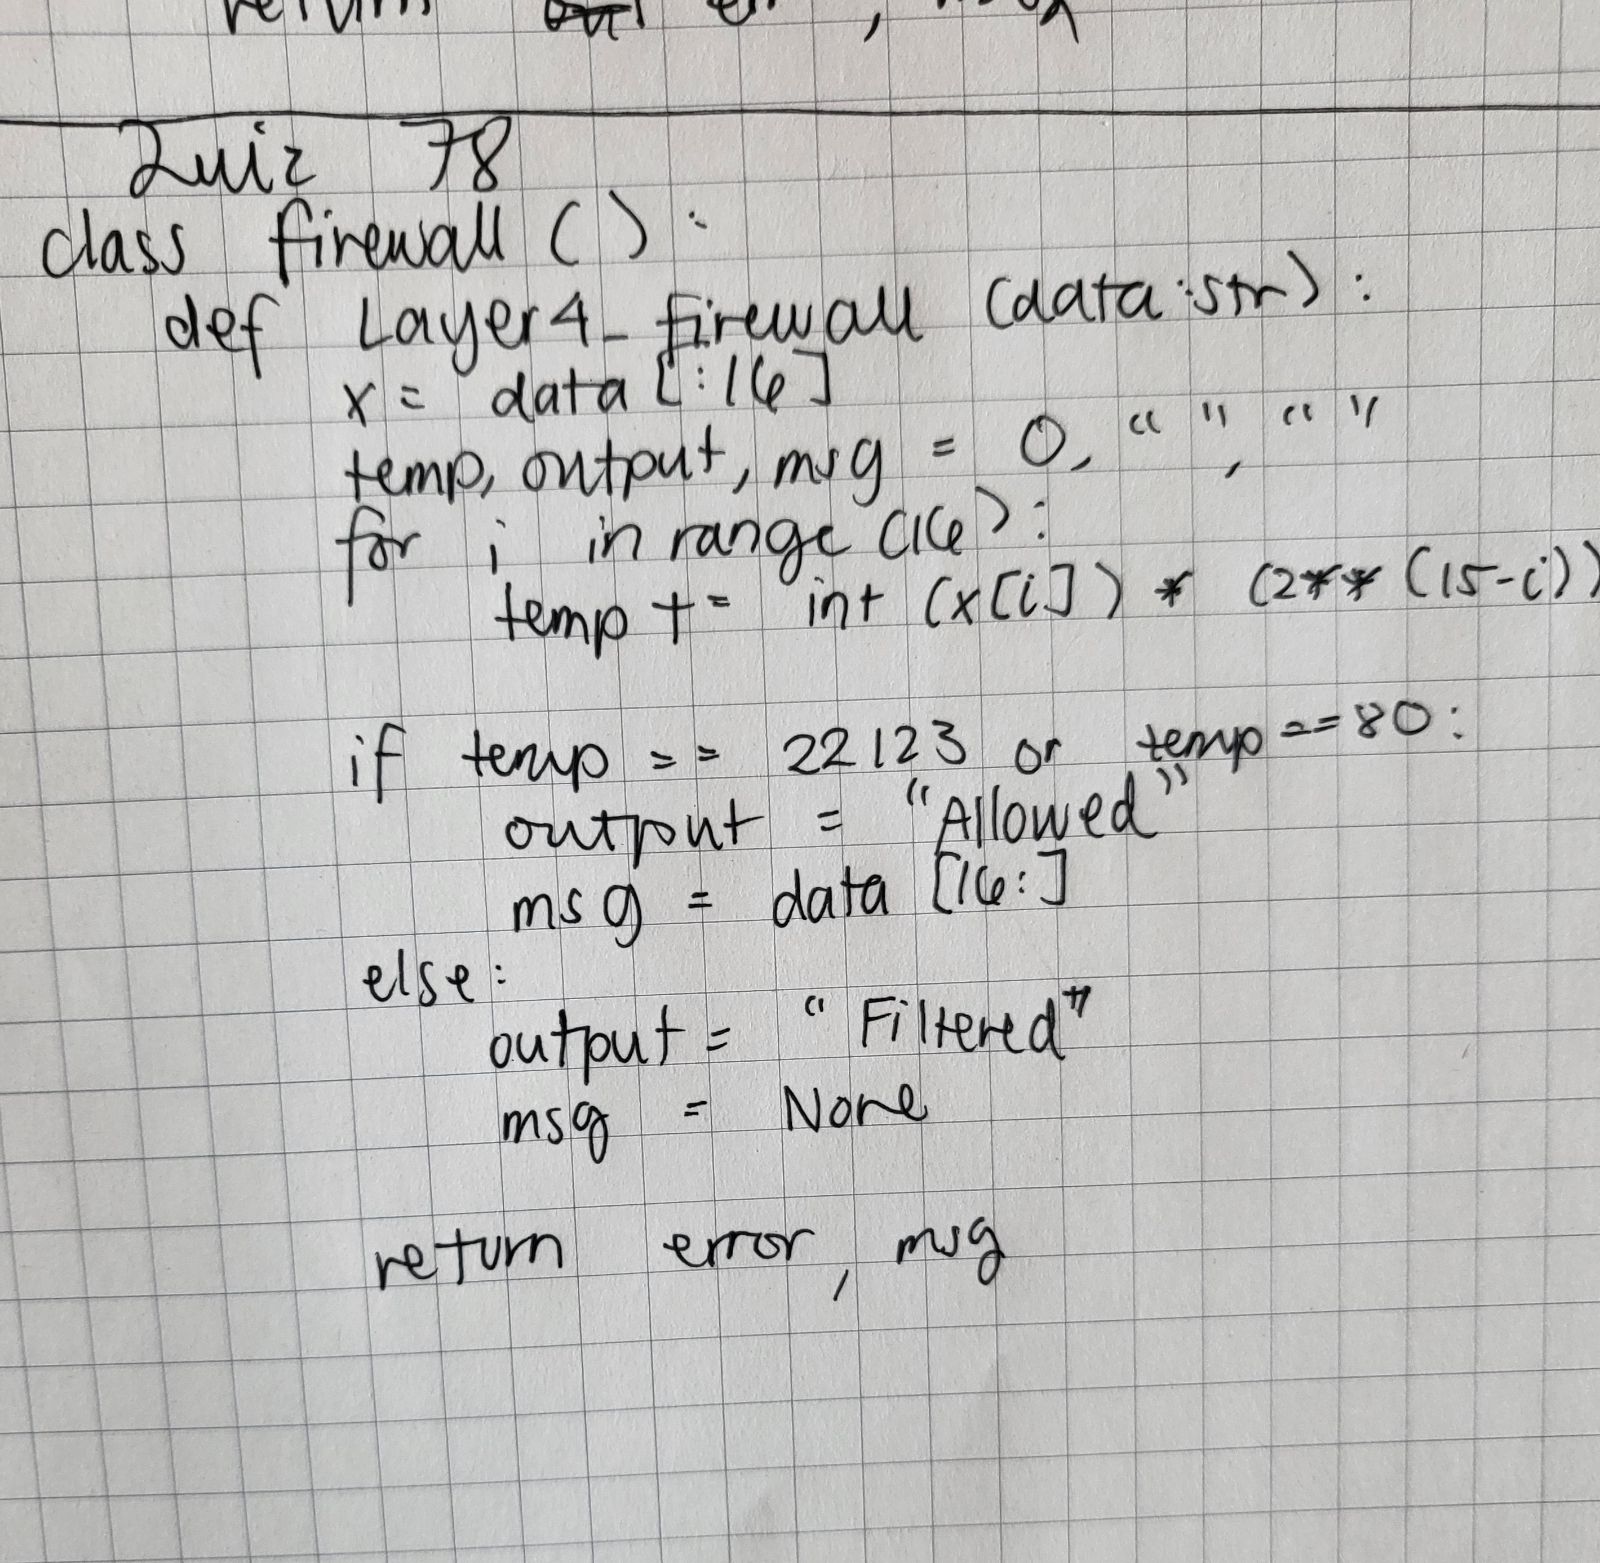 return
Quiz 78
class firewall ( ) :
def Layer4_firewall (data:str) :
x = data [:16]
temp, output, msg = 0, “ ”, “ ”
for i in range (16) :
temp += int (x[i]) * (2** (15-i))
if temp == 22123 or temp == 80 :
output = “Allowed”
msg = data [16:]
else :
output = “Filtered”
msg = None
return error, msg